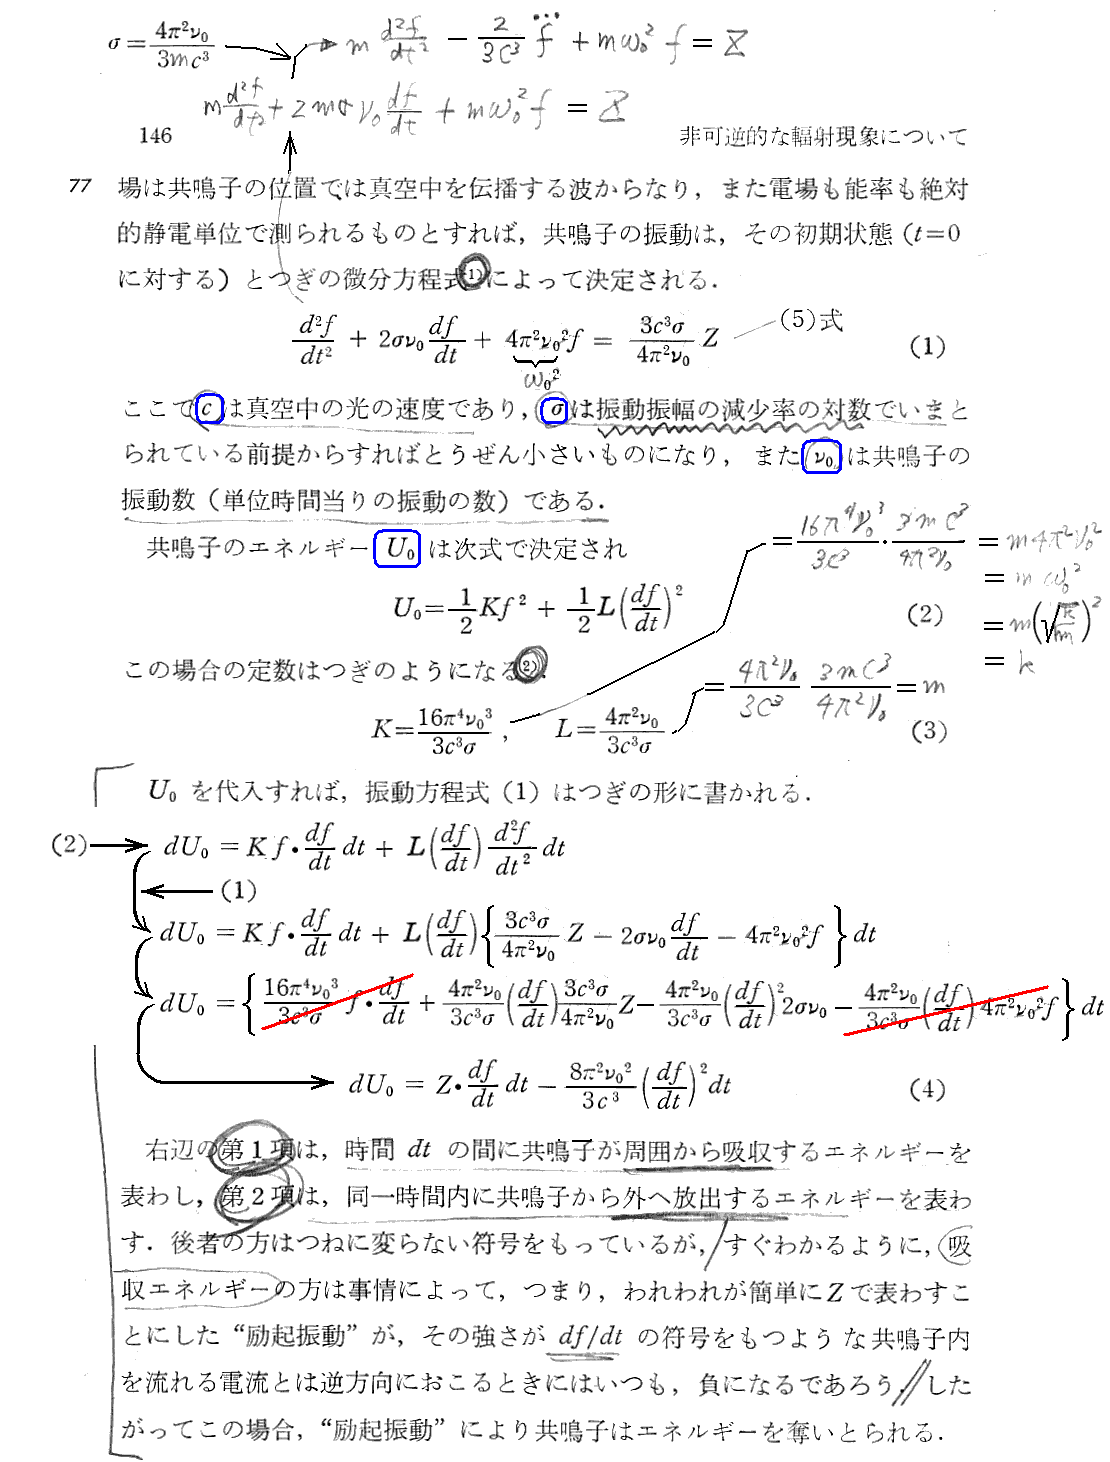 σ = 4π²ν₀ / 3mc³ → m d²f/dt² − 2/3c³ f⃛ + mω₀² f = Z
m d²f/dt² + 2mσν₀ df/dt + mω₀² f = Z
146 非可逆的な輻射現象について
77 場は共鳴子の位置では真空中を伝播する波からなり，また電場も能率も絶対
的静電単位で測られるものとすれば，共鳴子の振動は，その初期状態 (t=0
に対する) とつぎの微分方程式1)によって決定される．
d²f/dt² + 2σν₀ df/dt + 4π²ν₀²f = 3c³σ/4π²ν₀ Z (5)式 (1)
ω₀²
ここで c は真空中の光の速度であり，σ は振動振幅の減少率の対数でいまと
られている前提からすればとうぜん小さいものになり，また ν₀ は共鳴子の
振動数（単位時間当りの振動の数）である．
= 16π⁴ν₀³/3c³ · 3mc³/4π²ν₀ = m4π²ν₀²
共鳴子のエネルギー U₀ は次式で決定され
= mω₀²
U₀ = 1/2 Kf² + 1/2 L(df/dt)² (2)
= m(√k/m)²
= k
この場合の定数はつぎのようになる2)．
= 4π²ν₀/3c³ 3mc³/4π²ν₀ = m
K = 16π⁴ν₀³/3c³σ , L = 4π²ν₀/3c³σ (3)
U₀ を代入すれば，振動方程式 (1) はつぎの形に書かれる．
(2) → dU₀ = K f・df/dt dt + L(df/dt) d²f/dt² dt
← (1)
dU₀ = K f・df/dt dt + L(df/dt){3c³σ/4π²ν₀ Z − 2σν₀ df/dt − 4π²ν₀²f} dt
dU₀ = {16π⁴ν₀³/3c³σ f・df/dt + 4π²ν₀/3c³σ (df/dt) 3c³σ/4π²ν₀ Z − 4π²ν₀/3c³σ (df/dt)² 2σν₀ − 4π²ν₀/3c³σ (df/dt) 4π²ν₀²f} dt
dU₀ = Z・df/dt dt − 8π²ν₀²/3c³ (df/dt)² dt (4)
右辺の第1項は，時間 dt の間に共鳴子が周囲から吸収するエネルギーを
表わし，第2項は，同一時間内に共鳴子から外へ放出するエネルギーを表わ
す．後者の方はつねに変らない符号をもっているが，すぐわかるように，吸
収エネルギーの方は事情によって，つまり，われわれが簡単に Z で表わすこ
とにした “励起振動” が，その強さが df/dt の符号をもつような共鳴子内
を流れる電流とは逆方向におこるときにはいつも，負になるであろう．した
がってこの場合，“励起振動” により共鳴子はエネルギーを奪いとられる．